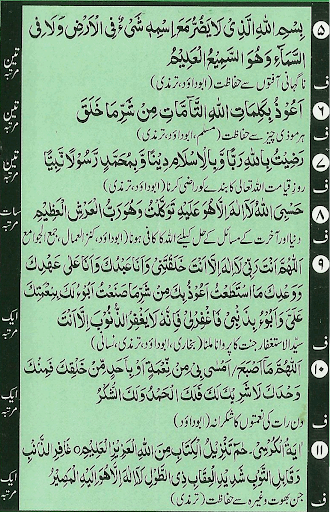 ۵ بِسْمِ اللهِ الَّذِیْ لَا یَضُرُّ مَعَ اسْمِهٖ شَیْءٌ فِی الْاَرْضِ وَلَا فِی
السَّمَآءِ وَهُوَ السَّمِیْعُ الْعَلِیْمُ تین مرتبہ
ف ناگہانی آفتوں سے حفاظت (ابوداؤد، ترمذی)
۶ اَعُوْذُ بِکَلِمَاتِ اللهِ التَّآمَّاتِ مِنْ شَرِّ مَا خَلَقَ تین مرتبہ
ف ہر موذی چیز سے حفاظت (مسلم، ابوداؤد، ترمذی)
۷ رَضِیْتُ بِاللهِ رَبًّا وَّبِالْاِسْلَامِ دِیْنًا وَّبِمُحَمَّدٍ رَّسُوْلًا نَّبِیًّا تین مرتبہ
ف روز قیامت اللہ تعالی کا بندے کو راضی کرنا (ابوداؤد، ترمذی)
۸ حَسْبِیَ اللهُ لَا اِلٰهَ اِلَّا هُوَ عَلَیْهِ تَوَکَّلْتُ وَهُوَ رَبُّ الْعَرْشِ الْعَظِیْمِ سات مرتبہ
ف دنیا اور آخرت کے مسائل کے حل کیلئے اللہ کا کافی ہونا (ابوداؤد، کنزالعمال، جمع الجوامع
۹ اَللّٰهُمَّ اَنْتَ رَبِّیْ لَا اِلٰهَ اِلَّا اَنْتَ خَلَقْتَنِیْ وَاَنَا عَبْدُكَ وَاَنَا عَلٰی عَهْدِكَ
وَوَعْدِكَ مَا اسْتَطَعْتُ اَعُوْذُ بِكَ مِنْ شَرِّ مَا صَنَعْتُ اَبُوْءُ لَكَ بِنِعْمَتِكَ
عَلَیَّ وَاَبُوْءُ بِذَنْبِیْ فَاغْفِرْلِیْ فَاِنَّهٗ لَا یَغْفِرُ الذُّنُوْبَ اِلَّا اَنْتَ ایک مرتبہ
ف سیّد الاستغفار جنت کا پروانا ملنا (بخاری، ابوداؤد، ترمذی، نسائی)
۱۰ اَللّٰهُمَّ مَا اَصْبَحَ / اَمْسٰی بِیْ مِنْ نِّعْمَةٍ اَوْ بِاَحَدٍ مِنْ خَلْقِكَ فَمِنْكَ
وَحْدَكَ لَا شَرِیْكَ لَكَ فَلَكَ الْحَمْدُ وَلَكَ الشُّکْرُ ایک مرتبہ
ف دن رات کی نعمتوں کا شکرانہ (ابوداؤد)
۱۱ اٰیَةُ الْکُرْسِیْ. حٰمٓ تَنْزِیْلُ الْکِتَابِ مِنَ اللهِ الْعَزِیْزِ الْعَلِیْمِ۝ غَافِرِ الذَّنْبِ
وَقَابِلِ التَّوْبِ شَدِیْدِ الْعِقَابِ ذِی الطَّوْلِ لَا اِلٰهَ اِلَّا هُوَ اِلَیْهِ الْمَصِیْرُ ایک مرتبہ
ف جن بھوت وغیرہ سے حفاظت (ترمذی)